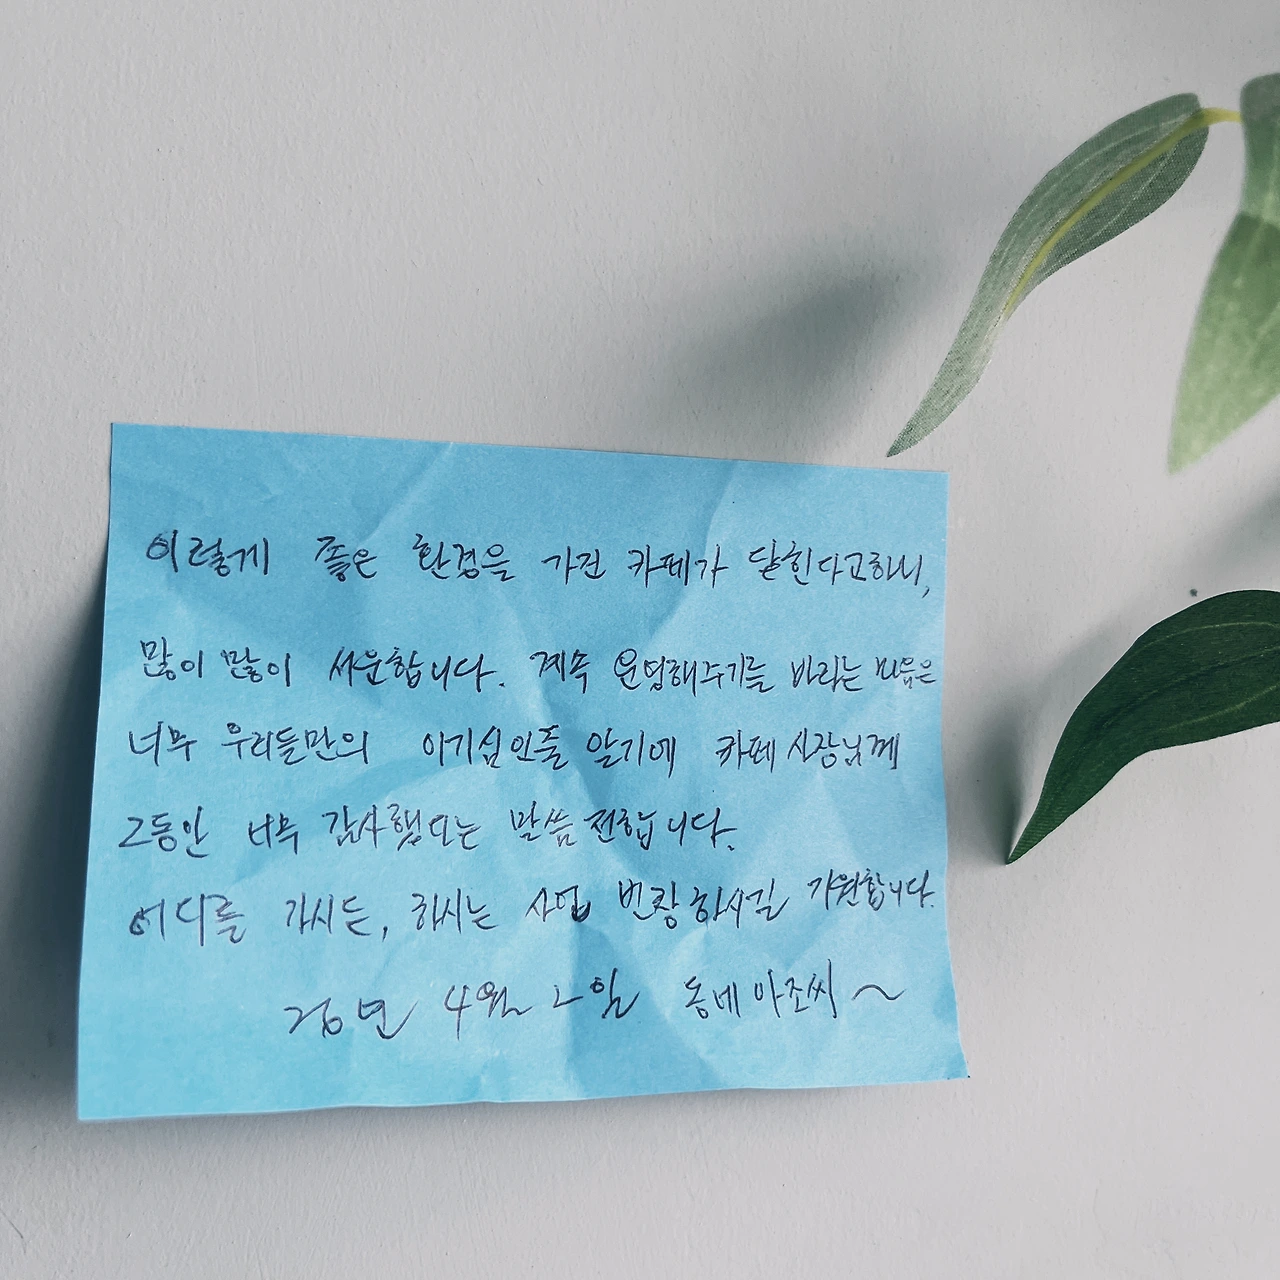 이렇게 좋은 환경을 가진 카페가 닫힌다고하니,
많이 많이 서운합니다. 계속 운영해주기를 바라는 마음은
너무 우리들만의 이기심인줄 알기에 카페 사장님께
그동안 너무 감사했다는 말씀 전합니다.
어디를 가시든, 하시는 사업 번창하시길 기원합니다.
26년 4월 2일 동네아조씨~